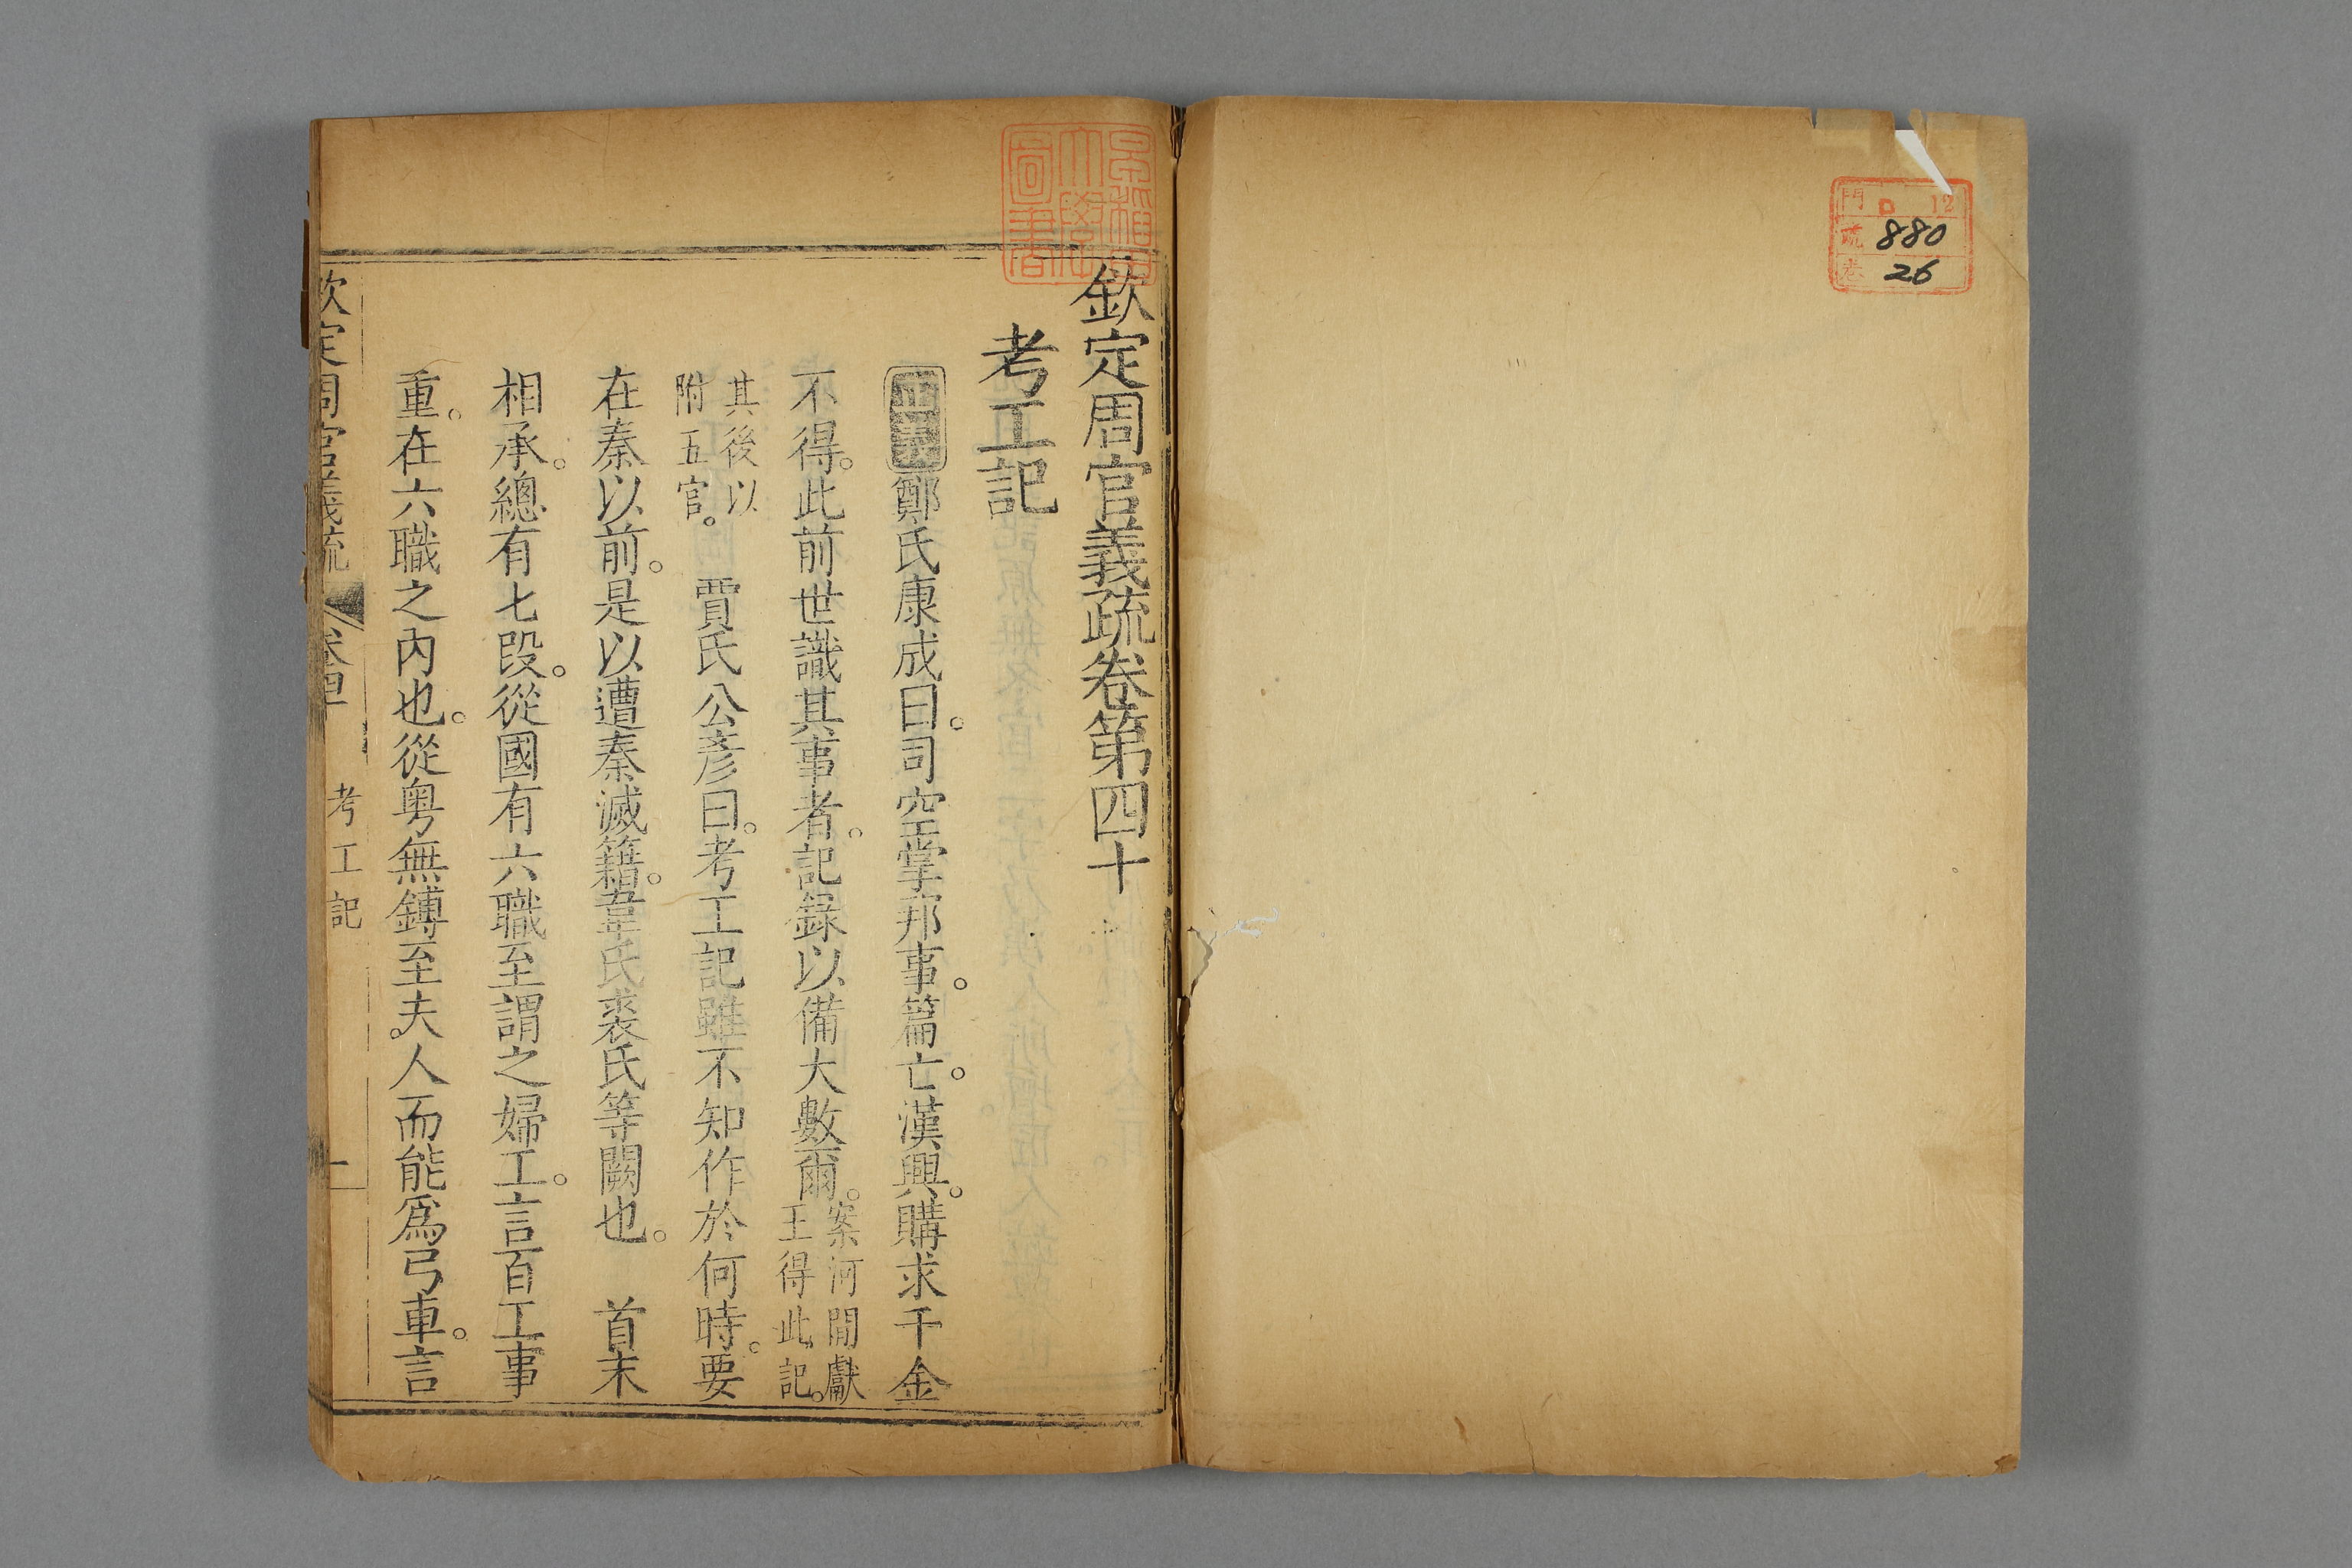 門 ロ 12
號 880
卷 26
早稲田大學圖書
欽定周官義疏卷第四十
考工記
正義鄭氏康成曰。司空掌邦事。篇亡。漢興。購求千金
不得。此前世識其事者。記錄以備大數爾。案河閒獻王得此記。
其後以附五官。 賈氏公彥曰。考工記雖不知作於何時。要
在秦以前。是以遭秦滅籍。韋氏裘氏等闕也。 首末
相承。總有七段。從國有六職至謂之婦工。言百工事
重。在六職之內也。從粤無鎛至夫。人而能爲弓車。言
欽定周官義疏 卷四十 考工記 一